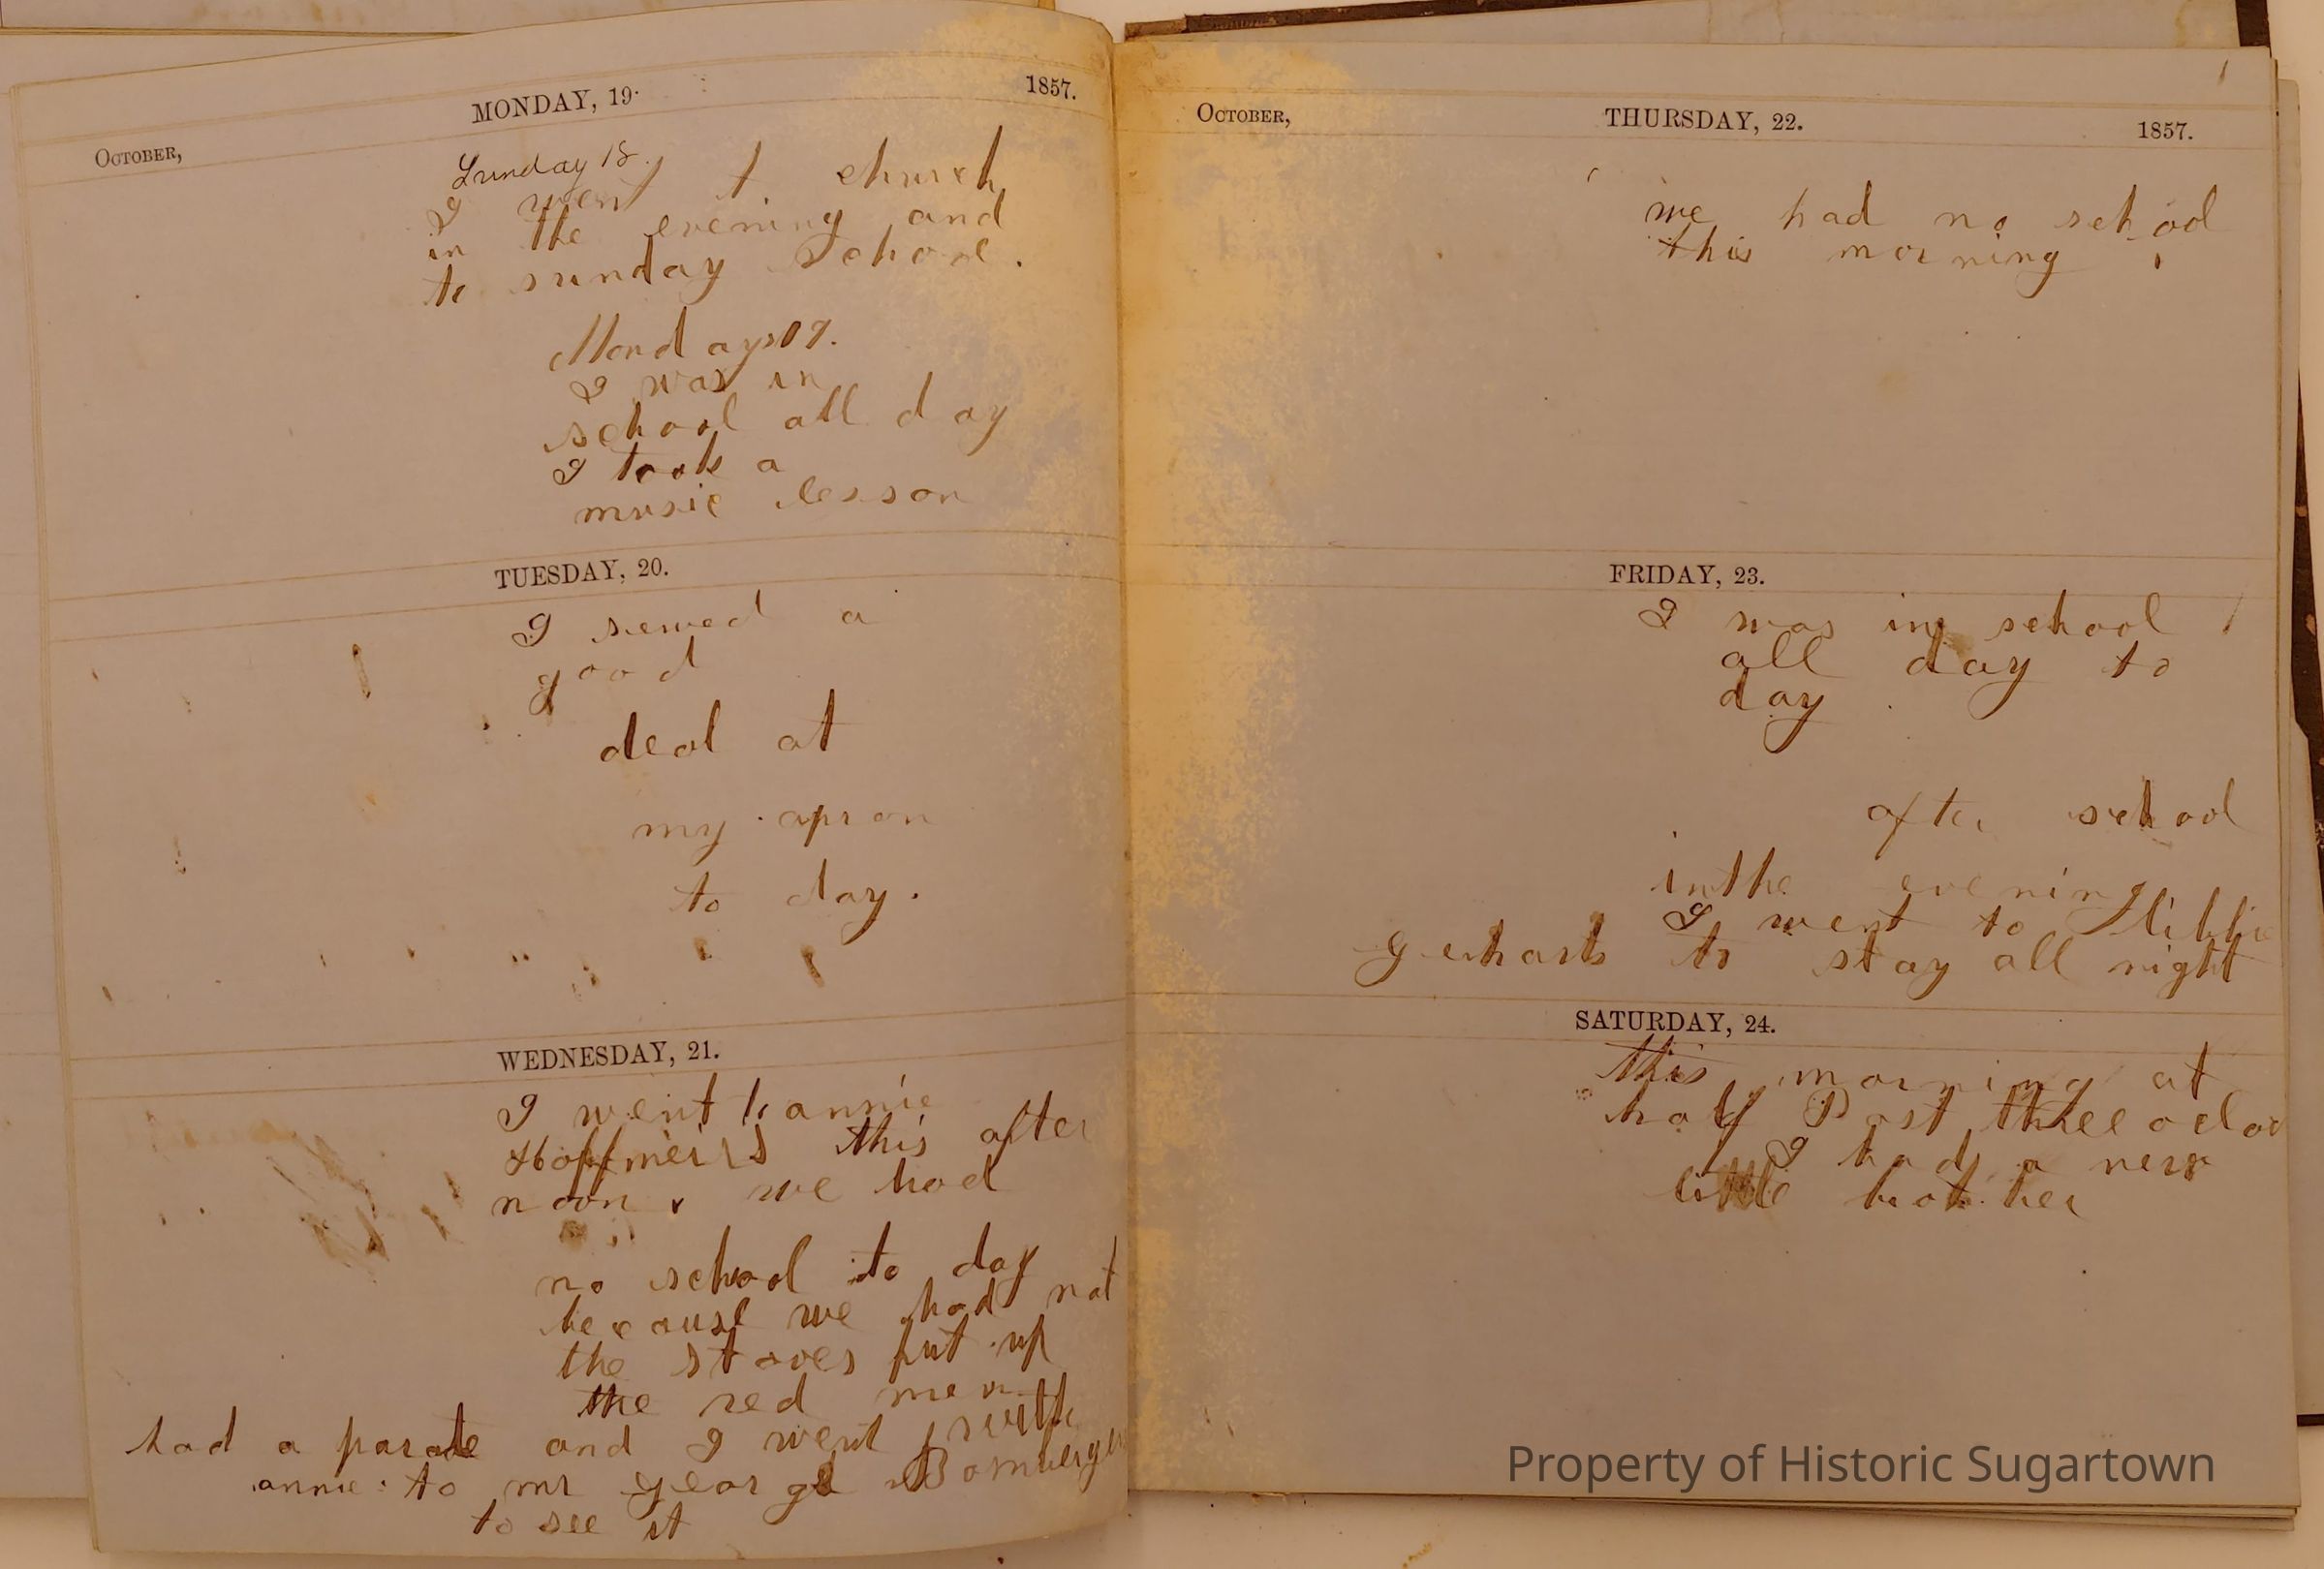 MONDAY, 19.
1857.
October,
Sunday 18.
I went t church
in the evening and
to sunday School.
Monday 19.
I was in
school all day
I took a
music lesson
TUESDAY, 20.
I sewed a
good
deal at
my apron
to day.
WEDNESDAY, 21.
I went to annie
Hoffmeirs this after
noon. we had
no school to day
because we had not
the stoves put up
the red men
had a parade and I went with
annie to mr george Bomberger
to see it
October,
THURSDAY, 22.
1857.
we had no school
this morning.
FRIDAY, 23.
I was in school
all day to
day.
after school
in the evening
I went to
gerharts to stay all night
SATURDAY, 24.
this morning at
half Past three ocloc
I had a new
little brother
Property of Historic Sugartown